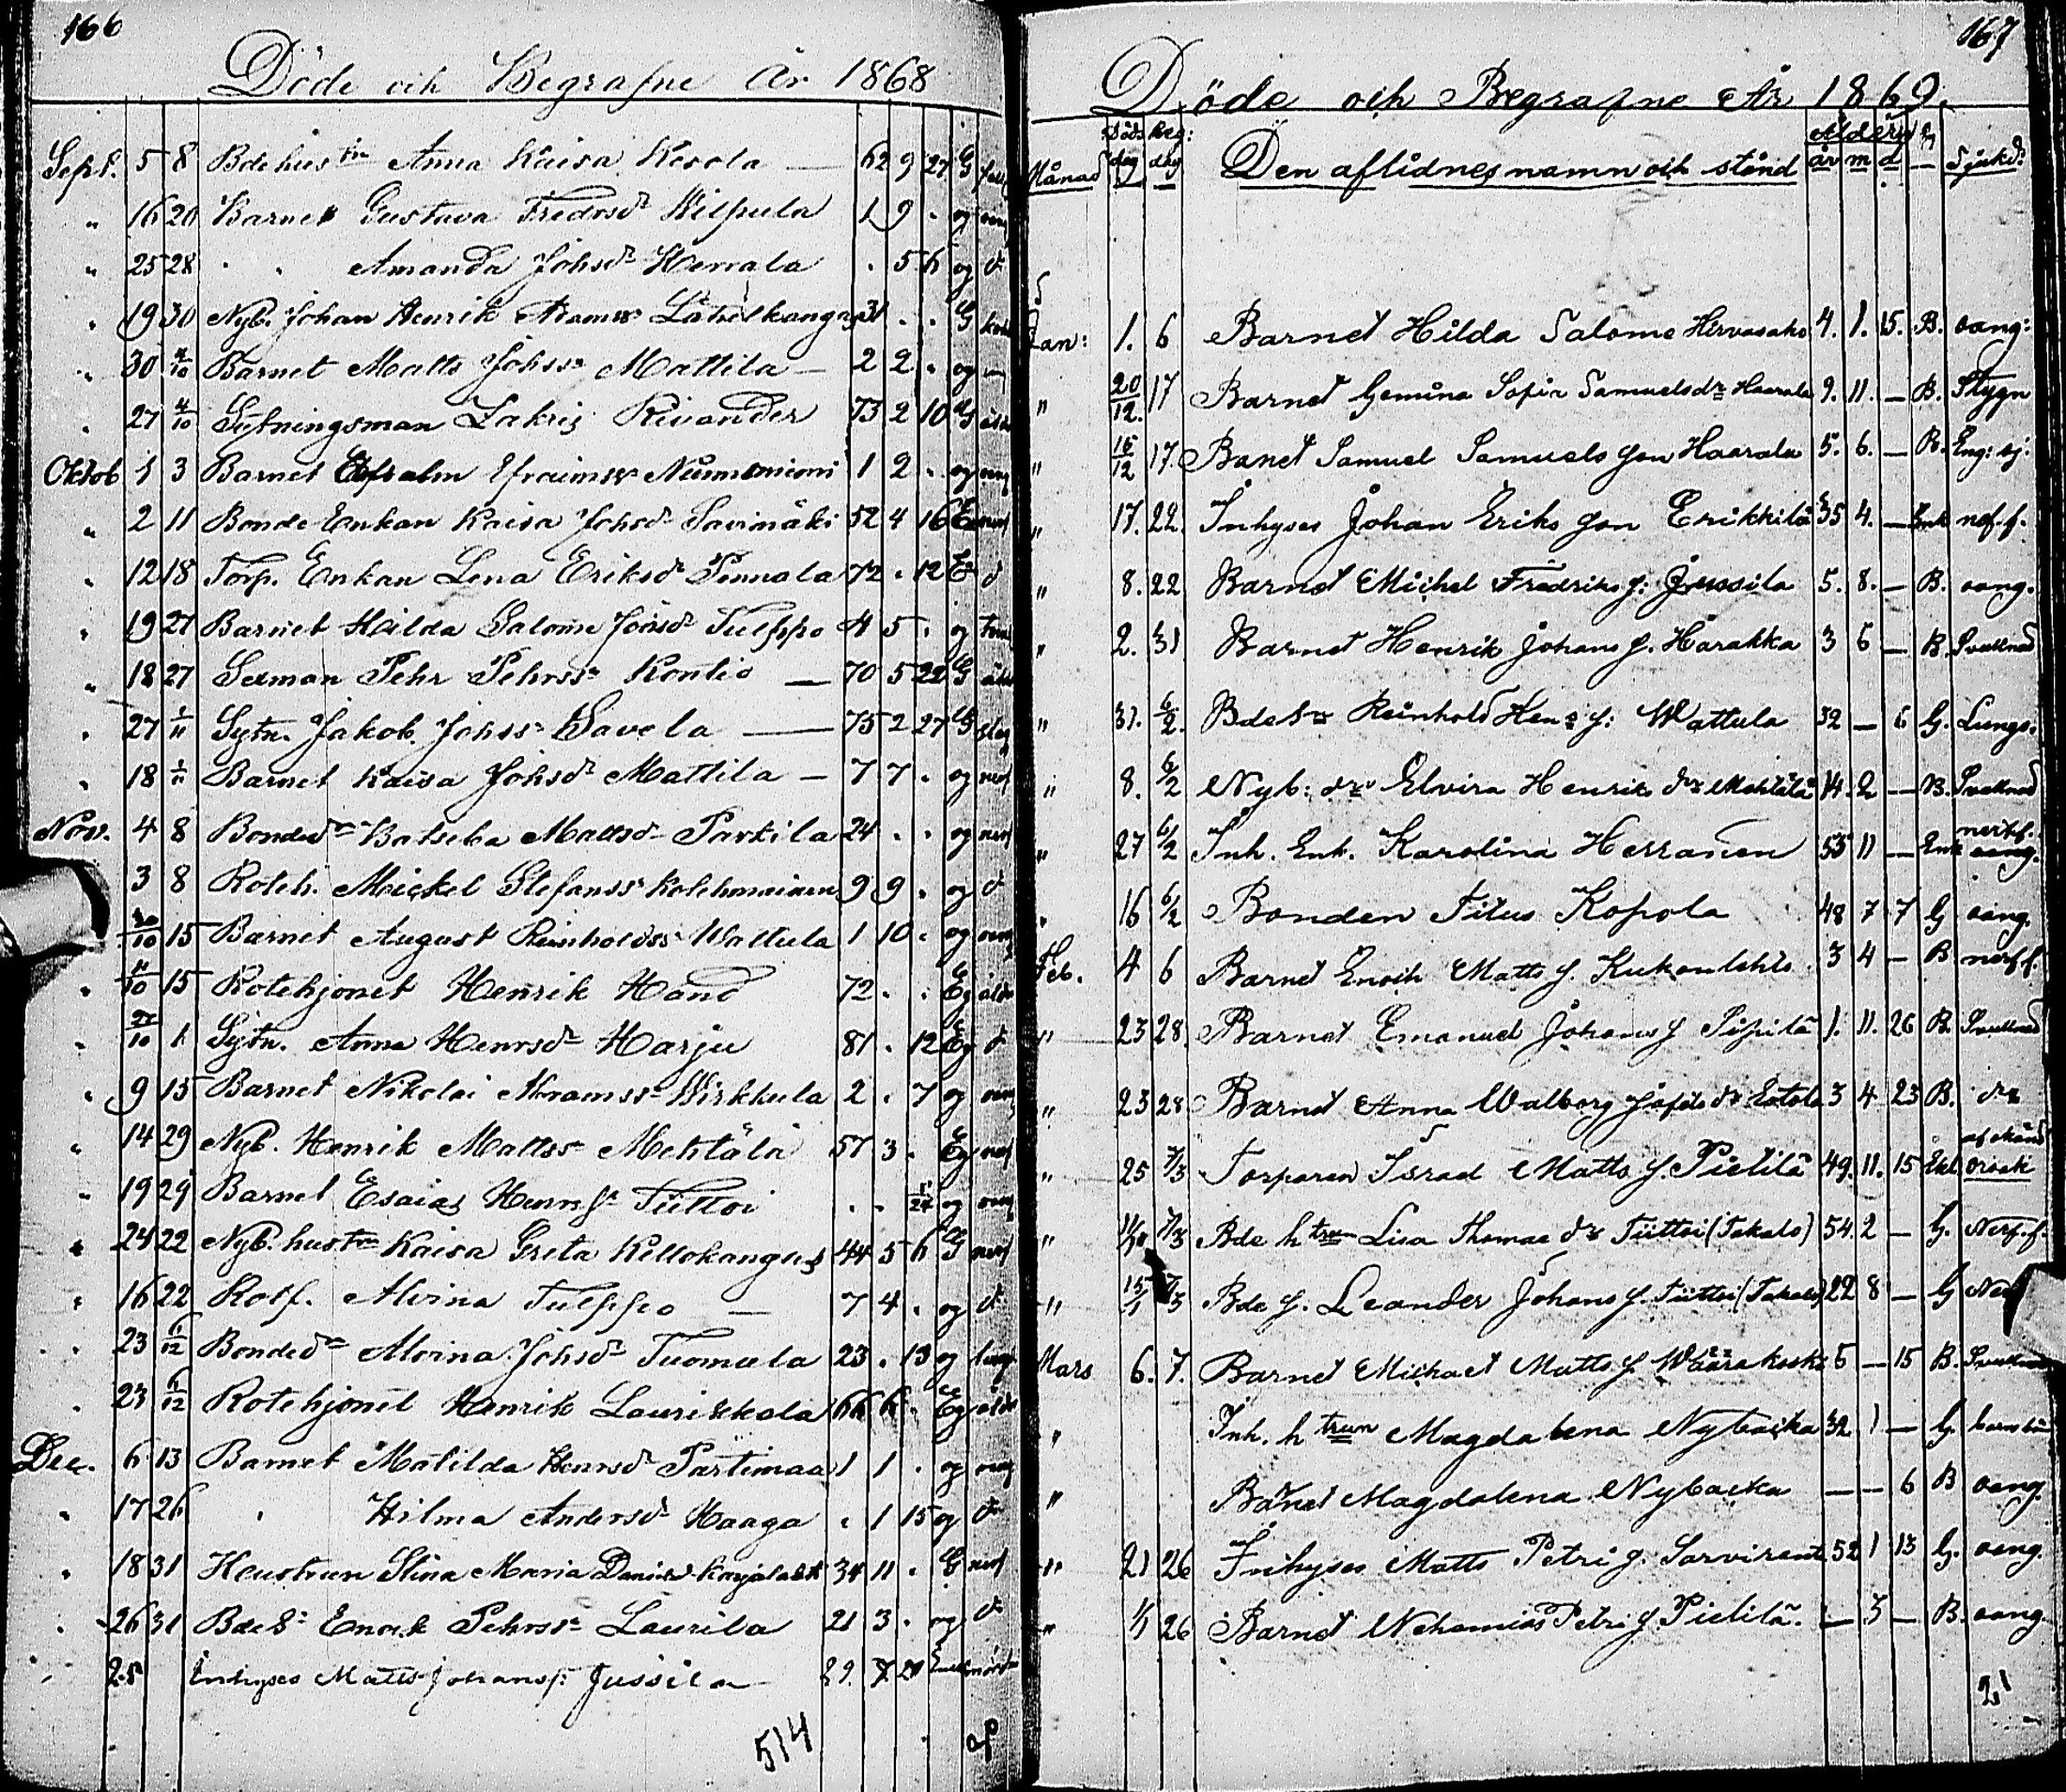 166
Döde och Begrafne År 1868
Sept. 5 8 Bdehustrn Anna Kaisa Kerola — 62 9 27 G
" 16 20 Barnet Gustava Fredrsdr Wilpula 1 9 . og
" 25 28 " " Amanda Johsdr Herrala . 5 6 og do
" 19 30 Nyb. Johan Henrik 31 . . G
" 30 4/10 Barnet Matts Johss Mattila — 2 2 . og
" 27 4/10 Sytningsman Zakris 73 2 10 G
Oktob 1 3 Barnet Efraim Efraimss 1 2 . og
" 2 11 Bonde Enkan Kaisa Johsdr Savimäki 52 4 16 E nerf
" 12 18 Torp. Enkan Lena Eriksdr Pennala 72 . 12 E d
" 19 27 Barnet Hilda Salome Tulppo 4 5 . og
" 18 27 Sexman Pehr Pehrss Kontio — 70 5 22 G
" 27 1/11 Sytn. Jakob Johss Savela — 75 2 27 G
" 18 1/11 Barnet Kaisa Johsdr Mattila — 7 7 . og nerf
Nov. 4 8 Bondedr Batseba Mattsdr Parkila 24 . . og nerf
3 8 Roteh. Mickel Stefanss Kolehmainen 9 9 . og do
30/10 15 Barnet August Reinholdss Wattula 1 10 . og
" 15 Rotehjonet Henrik Hand 72 . . Eg
" 1 Sytn. Anna Henrsdr Harju 81 . 12 Eg do
" 9 15 Barnet Nikolai Abramss Wirkkula 2 . 7 og
" 14 29 Nyb. Henrik Mattss Mehtälä 57 3 . Eg nerf
" 19 29 Barnet Esaias Henrss Tiittoi . . og
" 24 22 Nyb. hustrn Kaisa Greta Kellokangas 44 5 6 G nerf
" 16 22 Rotf. Alvina Tulppo — 7 4 . og do
" 23 6/12 Bondedr Alvina Johsdr Tuomela 23 . 13 og lung
" 23 6/12 Rotehjonet Henrik Laurikkala 66 6 . Eg
Dec. 6 13 Barnet Matilda Henrsdr Partimaa 1 1 . og
" 17 26 " Hilma Andersdr Haaga . 1 15 og do
" 18 31 Hustrun Stina Maria 34 11 . G nerf
" 26 31 Bdes Enok Pehrss Laurila 21 3 . og do
" 25 Inhyses Matts Johans s. Jussila 29. 7 21
514
167
Döde och Begrafne År 1869.
Månad Döds dag Beg: dag Den aflidnes namn och stånd Ålder år m d Sjukd:
Jan: 1. 6 Barnet Hilda Salome Hirvasaho 4. 1. 15. B. oang:
" 20/12. 17 Barnet Gemina Sofia Samuelsdr Haarala 9. 11. — B. Stygn
" 15/12 17. Banet Samuel Samuels son Haarala 5. 6. — B. Eng: sj:
" 17. 22. Inhyses Johan Eriks son Erikkilä 35 4. — Enk nef. f.
" 8. 22 Barnet Michel Fredriks s: Jussila 5. 8. — B. oang.
" 2. 31 Barnet Henrik Johans s. Harakka 3 6 — B. Svullnad
" 31. 6/2. Bdesn Reinhold Hen: s: Wattula 32 — 6 G. Lungs.
" 8. 6/2 Nyb: dr Elvira Henriks dr Mehtälä 14. 2 — B. Svullnad
" 27 6/2 Inh. Enk. Karolina Herranen 55 11 — Enk nerff. oang.
" 16 6/2 Bonden Titus Kopola 48 7 7 G oang.
Feb. 4 6 Barnet Enoch Matts s. Kukonlehto 3 4 — B nerf f.
" 23 28. Barnet Emanuel Johans s Pipilä 1. 11. 26 B. Svullnad
" 23 28 Barnet Anna Walborg Josefs dr Estola 3 4 23 B. do
" 25 7/3 Torparen Israel Matts s. Pietilä 49. 11. 15 Enk af okänd orsak
" 7/3 Bde htrun Lisa Thomae dr Tiittoi (Takalo) 54. 2 — G. Nerf. f.
" 15/1 7/3 Bde s. Leander Johans s. Tiittoi (Takalo) 22 8 — G
Mars 6. 7. Barnet Michael Matts s. Wäärakoski 5 — 15 B. Svullnad
" Inh. htrun Magdalena Nybacka 32 1 — G.
" Barnet Magdalena Nybacka — — 6 B oang.
" 21 26 Inhyses Matts Petri s: Sarviranta 52 1 13 G. oang.
" 1/1 26 Barnet Nehemias Petri s. Pietilä. — 3 — B. oang.
21